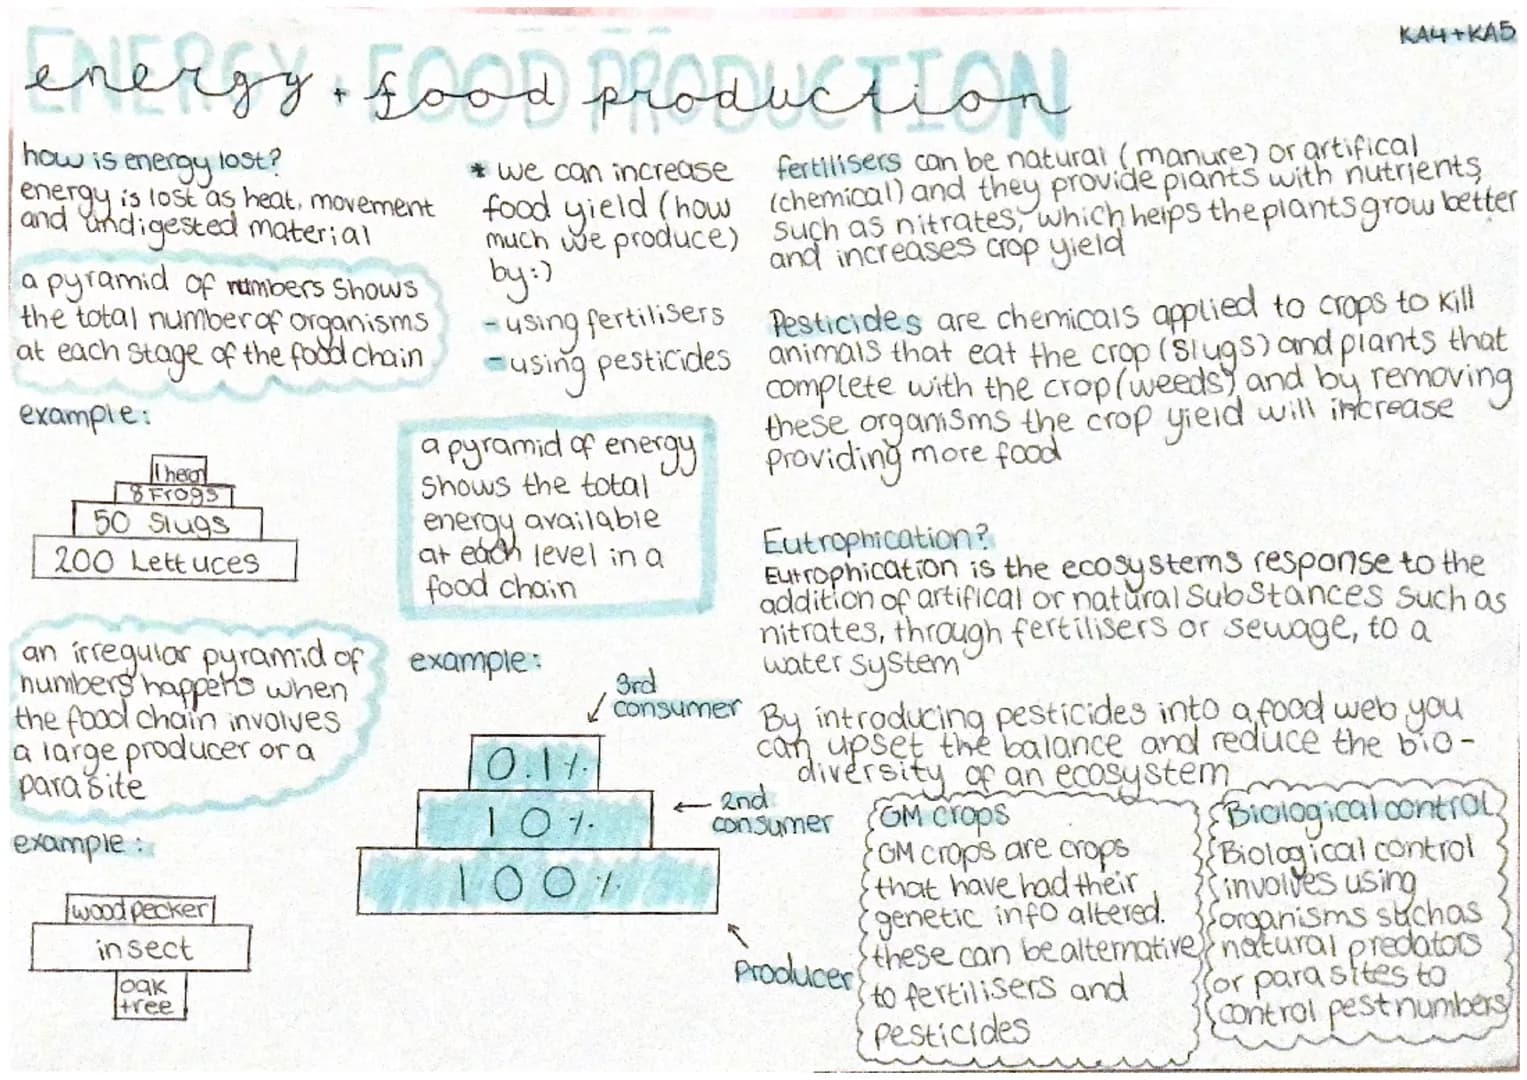 KA4+KA5
ENERGY + FOOD PRODUCTION
energy + food production
how is energy lost?
energy is lost as heat, movement
and undigested material
a pyramid of numbers shows
the total number of organisms
at each stage of the food chain
example:
8 Frogs
50 Slugs
200 Lettuces
an irregular pyramid of
numbers happens when
the food chain involves
a large producer or a
parasite
example:
woodpecker
insect
oak
tree
* we can increase
food yield (how
much we produce)
by:)
- using fertilisers
- using pesticides
a pyramid of energy
shows the total
energy available
at each level in a
food chain
example:
3rd
consumer
0.1%
10%
2nd
consumer
100%
Producer
fertilisers can be natural (manure) or artifical
(chemical) and they provide plants with nutrients,
such as nitrates, which helps the plants grow better
and increases crop yield
Pesticides are chemicals applied to crops to kill
animals that eat the crop (slugs) and plants that
complete with the crop (weeds) and by removing
these organisms the crop yield will increase
providing more food
Eutrophication?
Eutrophication is the ecosystems response to the
addition of artifical or natural substances such as
nitrates, through fertilisers or sewage, to a
water system
By introducing pesticides into a food web you
can upset the balance and reduce the bio-
diversity of an ecosystem
GM crops
GM crops are crops
that have had their
genetic info altered.
these can be alternative
to fertilisers and
pesticides
Biological control
Biological control
involves using
organisms such as
natural predators
or parasites to
control pest numbers